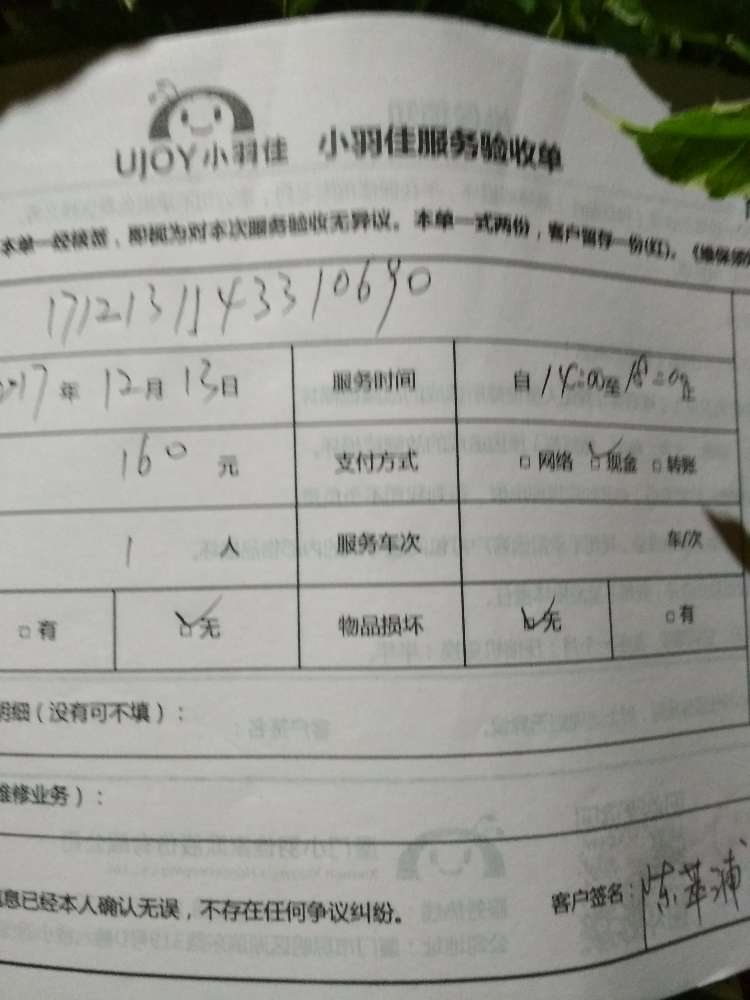 UJOY小羽佳 小羽佳服务验收单
本单一经核签，即视为对本次服务验收无异议。本单一式两份，客户留存一份(红)。
1712131143310690
2017年12月13日 服务时间 自14:00至18:00止
160元 支付方式 □网络 ☑现金 □转账
1人 服务车次 车/次
□有 ☑无 物品损坏 ☑无 □有
明细（没有可不填）：
维修业务）：
信息已经本人确认无误，不存在任何争议纠纷。 客户签名：陈